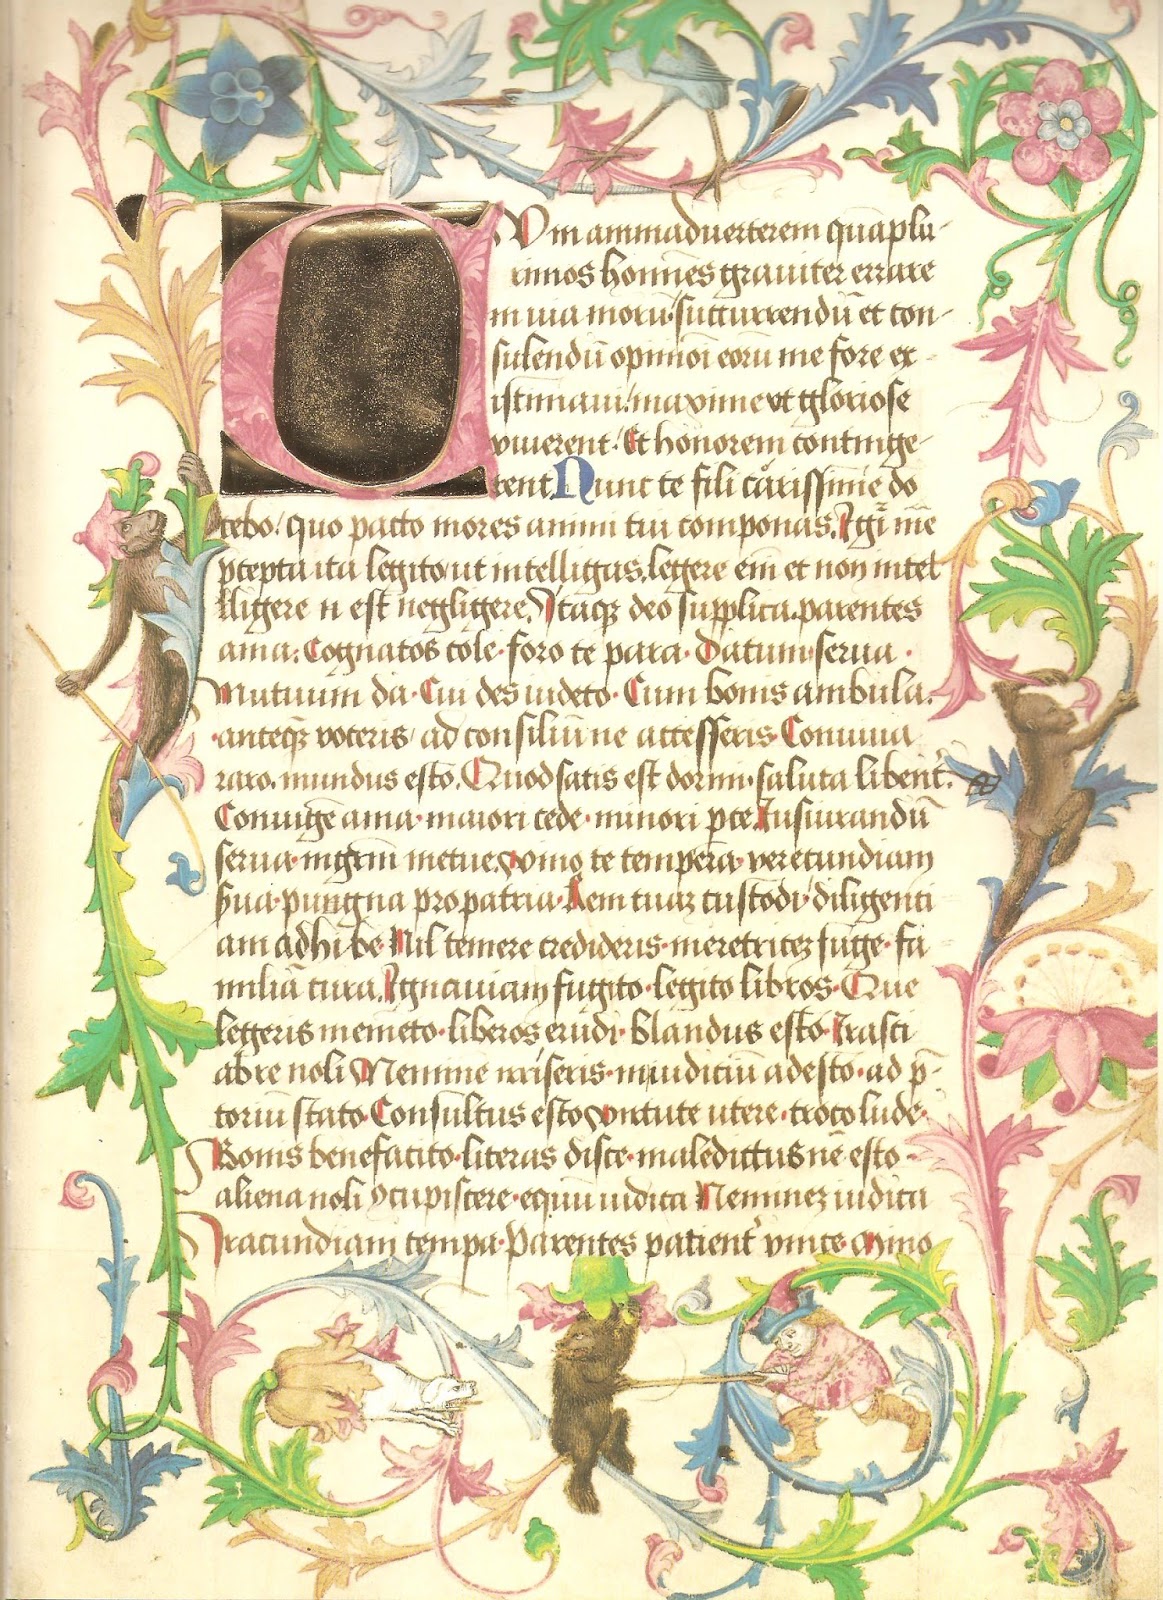 Vm animaduerterem quāplu-
rimos homines grauiter errare
in uia morū / succurrendū et con-
sulendū opinioi eorū me fore ex-
istimaui / maxime vt gloriose
viuerent / Et honorem continge-
rent. Nunc te fili carissime do
cebo / quo pacto mores animi tui componas. Igr̄ mē
p̄cepta ita legito ut intelligas. legere em̄ et non intel
lligere n̄ est negligere. Itaqz deo supplica. parentes
ama. Cognatos cole · foro te para · Datum serua ·
Mutuum da · Cui des uideto · Cum bonis ambula.
anteqz voceris / ad consiliū ne accesseris Conuiuia
raro. mundus esto. Quod satis est dormi · saluta libent̄.
Coniugē ama · maiori cede · minori pce Iusiurandū
serua · mgrm̄ metue. vino te tempera · verecundiam
sua · pungna pro patria · Rem tuaz custodi · diligenti
am adhibe · Nil temere credideris · meretricez fuge · fa
miliā cura. Ignauiam fugito · legito libros · Que
legeris memēto · liberos erudi · blandus esto Irasci
abre noli Neminē riseris · iniudiciū adesto · ad p̄-
toriū stato Consultus esto virtute utere · troco lude ·
Bonis benefacito · literas disce · maledictus nē esto -
aliena noli 9cupiscere · equū iudica Neminez iudica
Iracundiam tempa · Parentes patient̄ vince Mino